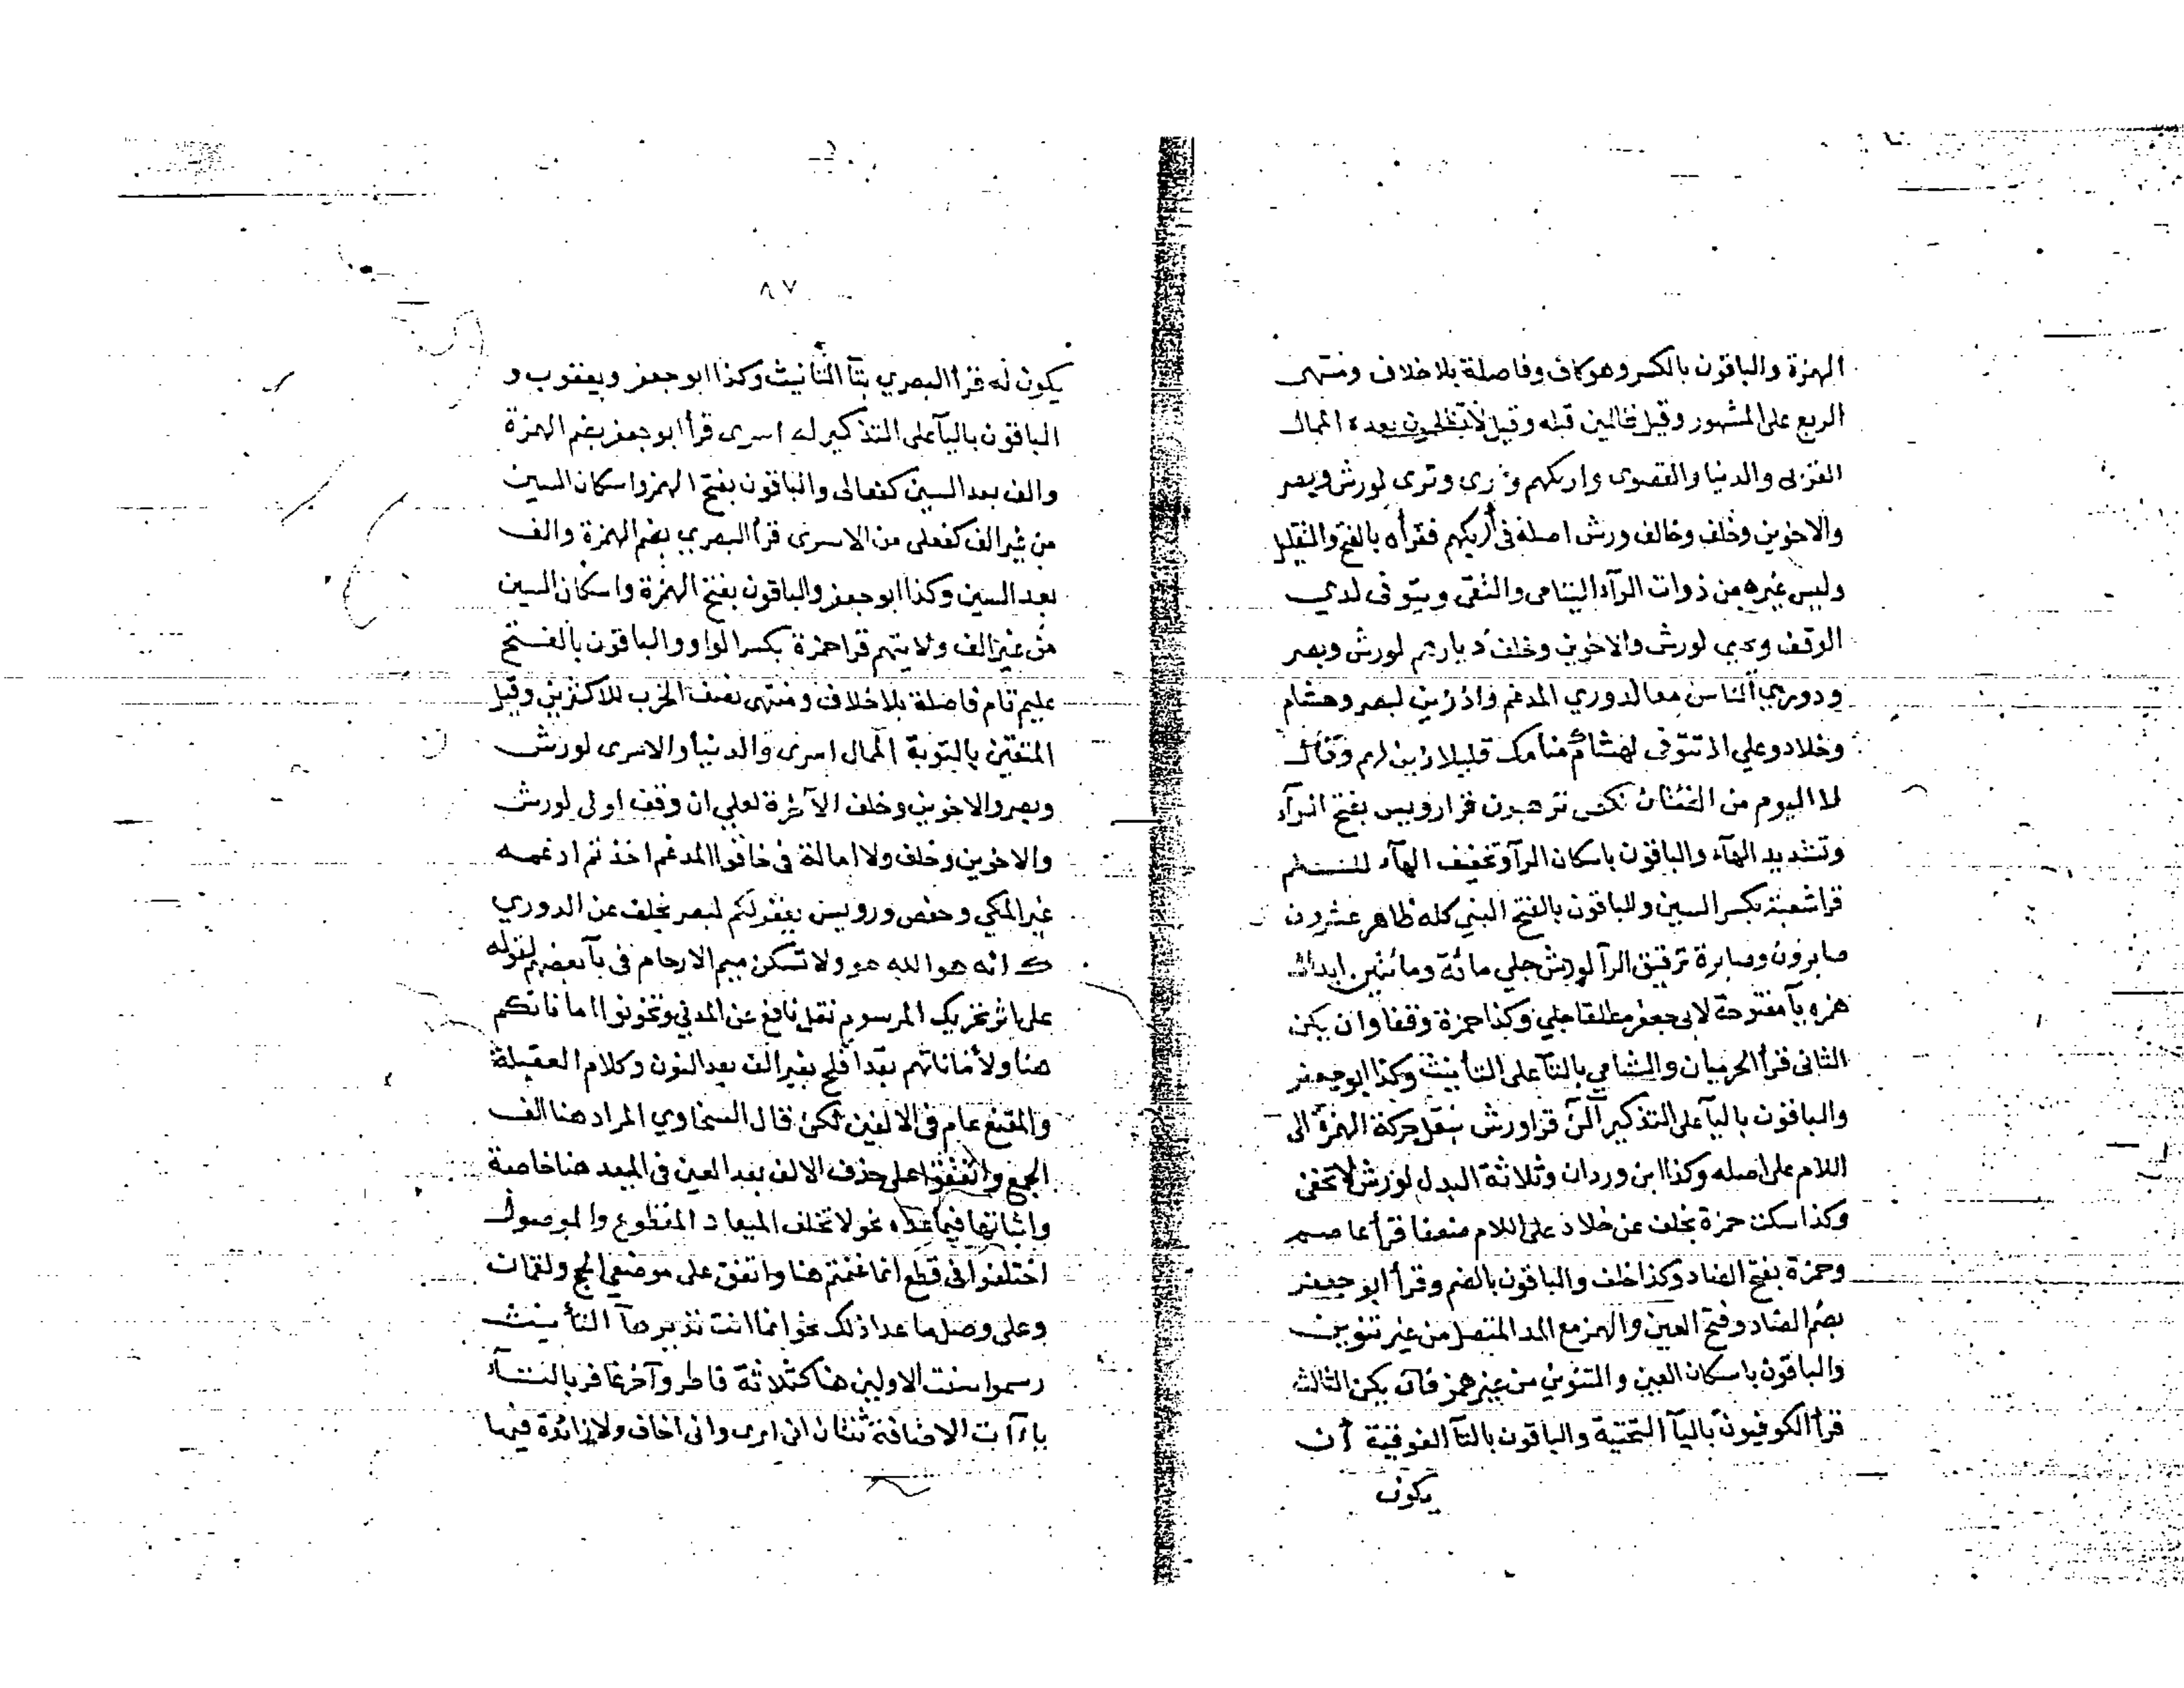 الهمزة والباقون بالكسر وهو كاف وفاصلة بلا خلاف ومنتهى
الربع على المشهور وقيل ظالمين قبله وقيل لا تظلمون بعده الممال
القربى والدنيا والقصوى واريكهم وأرى وترى لورش وبصر
والاخوين وخلف وخالف ورش اصله في أريكهم فقرأه بالفتح والتقليل
وليس غيره من ذوات الرآء اليتامى والتقى ويتوفى لدي
الوقف ويحيى لورش والاخوين وخلف ديارهم لورش وبصر
ودوري الناس معا لدوري المدغم واذ زين لبصر وهشام
وخلاد وعلي اذ تتوفى لهشام منامك قليلا زين لهم وقال
لا اليوم من الفئتان نكص ترهبون قرا رويس بفتح الرآء
وتشديد الهآء والباقون باسكان الرآ وتخفيف الهآء للسلم
قرا شعبة بكسر السين والباقون بالفتح النبي كله ظاهر عشرون
صابرون وصابرة ترقيق الرآ لورش جلي مائة ومائتين ابدال
همزه يآ مفتوحة لابى جعفر مطلقا جلي وكذا حمزة وقفا وان يكن
الثانى قرأ الحرميان والشامي بالتآ على التأنيث وكذا ابو جعفر
والباقون باليآ على التذكير آلن قرا ورش بنقل حركة الهمزة الى
اللام على اصله وكذا ابن وردان وثلاثة البدل لورش لا تخفى
وكذا سكت حمزة بخلف عن خلاد على اللام ضعفا قرأ عاصم
وحمزة بفتح الضاد وكذا خلف والباقون بالضم وقرأ ابو جعفر
بضم الضاد وفتح العين والهمز مع المد المتصل من غير تنوين
والباقون باسكان العين والتنوين من غير همز فان يكن الثالث
قرأ الكوفيون باليآ التحتية والباقون بالتآ الفوقية أن
يكون
٨٧
يكون له قرأ البصري بتآ التأنيث وكذا ابو جعفر ويعقوب و
الباقون باليآ على التذكير له اسرى قرأ ابو جعفر بضم الهمزة
والف بعد السين كفعالى والباقون بفتح الهمز واسكان السين
من غير الف كفعلى من الاسرى قرأ البصري بضم الهمزة والف
بعد السين وكذا ابو جعفر والباقون بفتح الهمزة واسكان السين
من غير الف ولايتهم قرا حمزة بكسر الواو والباقون بالفتح
عليم تام فاصلة بلا خلاف ومنتهى نصف الحزب للاكثرين وقيل
المتقين بالتوبة الممال اسرى والدنيا والاسرى لورش
وبصر والاخوين وخلف الآخرة لعلي ان وقف اولى لورش
والاخوين وخلف ولا امالة في خافوا المدغم اخذتم ادغمه
غير المكي وحفص ورويس يغفر لكم لبصر بخلف عن الدوري
ك انه هو الله هو ولا تسكن ميم الارحام في بآ بعضهم لقوله
على اثر تحريك المرسوم نقل نافع عن المدني وتخونوا اماناتكم
هنا ولأماناتهم بقد افلح بغير الف بعد النون وكلام العقيلة
والمقنع عام في الالفين لكن قال السخاوي المراد هنا الف
الجمع واتفقوا على حذف الالف بعد العين في الميعد هنا خاصة
واثباتها فيما عداه نحو لا تخلف الميعاد المقطوع والموصول
اختلفوا في قطع انما غنمتم هنا واتفق على موضعي الحج ولقمان
وعلى وصل ما عدا ذلك نحو انما انت نذير هآ التأنيث
رسموا سنت الاولين هنا كثلاثة فاطر وآخر غافر بالتآء
ياءآت الاضافة ثنتان انى ارى وانى اخاف ولا زائدة فيها